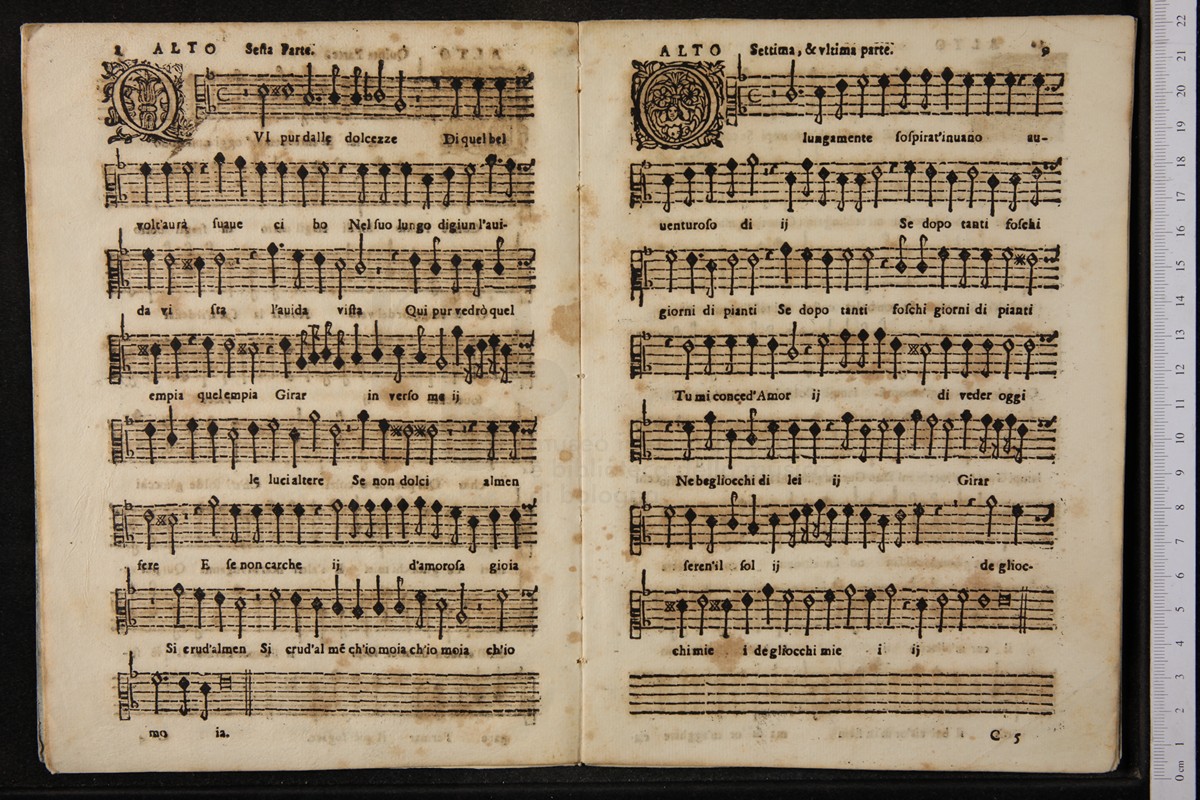 2 ALTO Sesta Parte.
QVI pur dalle dolcezze Di quel bel
volt'aurà suaue ci bo Nel suo lungo digiun l'aui-
da vi sta l'auida vista Qui pur vedrò quel
empia quel empia Girar in verso me ij
le luci altere Se non dolci almen
fere E se non carche ij d'amorosa gioia
Si crud'almen Si crud'al mē ch'io moia ch'io moia ch'io
mo ia.
ALTO Settima, & vltima parte. 9
O lungamente sospirat'inuano au-
uenturoso di ij Se dopo tanti foschi
giorni di pianti Se dopo tanti foschi giorni di pianti
Tu mi conced'Amor ij di veder oggi
Ne begliocchi di lei ij Girar
seren'il sol ij de glioc-
chi mie i de gliocchi mie i ij
C 5
22
21
20
19
18
17
16
15
14
13
12
11
10
9
8
7
6
5
4
3
2
1
0 cm